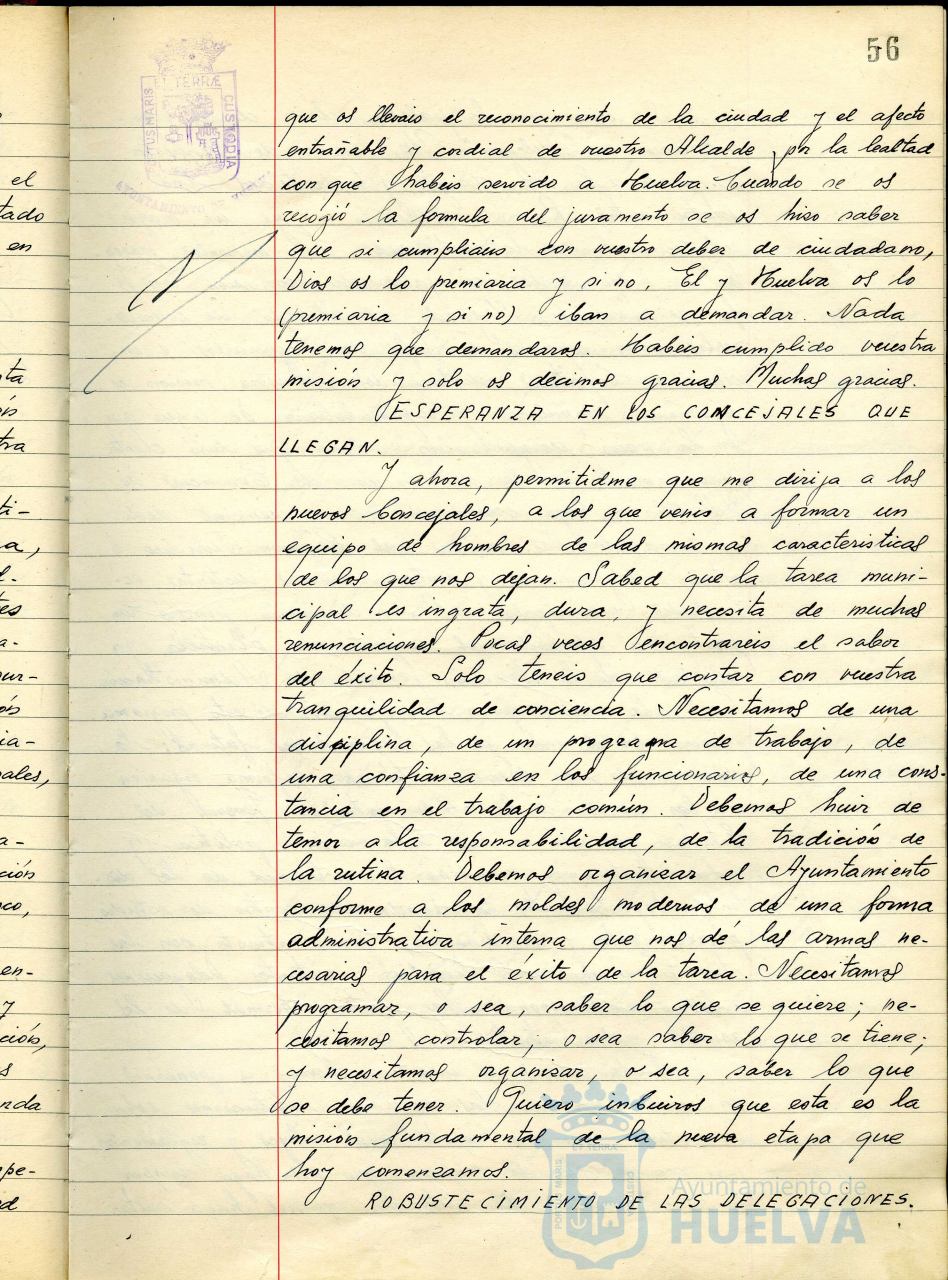 56
ET TERRÆ
CUSTODIA
que os llevais el reconocimiento de la ciudad y el afecto
entrañable y cordial de vuestro Alcalde por la lealtad
con que habeis servido a Huelva. Cuando se os
recogió la formula del juramento se os hizo saber
que si cumpliais con vuestro deber de ciudadano,
Dios os lo premiaria y si no, El y Huelva os lo
(premiaria y si no) iban a demandar. Nada
tenemos que demandaros. Habeis cumplido vuestra
misión y solo os decimos gracias. Muchas gracias.
ESPERANZA EN LOS CONCEJALES QUE
LLEGAN.
Y ahora, permitidme que me dirija a los
nuevos Concejales, a los que venis a formar un
equipo de hombres de las mismas caracteristicas
de los que nos dejan. Sabed que la tarea muni-
cipal es ingrata, dura, y necesita de muchas
renunciaciones. Pocas veces encontrareis el sabor
del éxito. Solo teneis que contar con vuestra
tranquilidad de conciencia. Necesitamos de una
disciplina, de un programa de trabajo, de
una confianza en los funcionarios, de una cons-
tancia en el trabajo común. Debemos huir de
temor a la responsabilidad, de la tradición de
la rutina. Debemos organizar el Ayuntamiento
conforme a los moldes modernos de una forma
administrativa interna que nos dé las armas ne-
cesarias para el éxito de la tarea. Necesitamos
programar, o sea, saber lo que se quiere; ne-
cesitamos controlar, o sea saber lo que se tiene;
y necesitamos organizar, o sea, saber lo que
se debe tener. Quiero imbuiros que esta es la
misión fundamental de la nueva etapa que
hoy comenzamos.
ROBUSTECIMIENTO DE LAS DELEGACIONES.
Ayuntamiento de
HUELVA